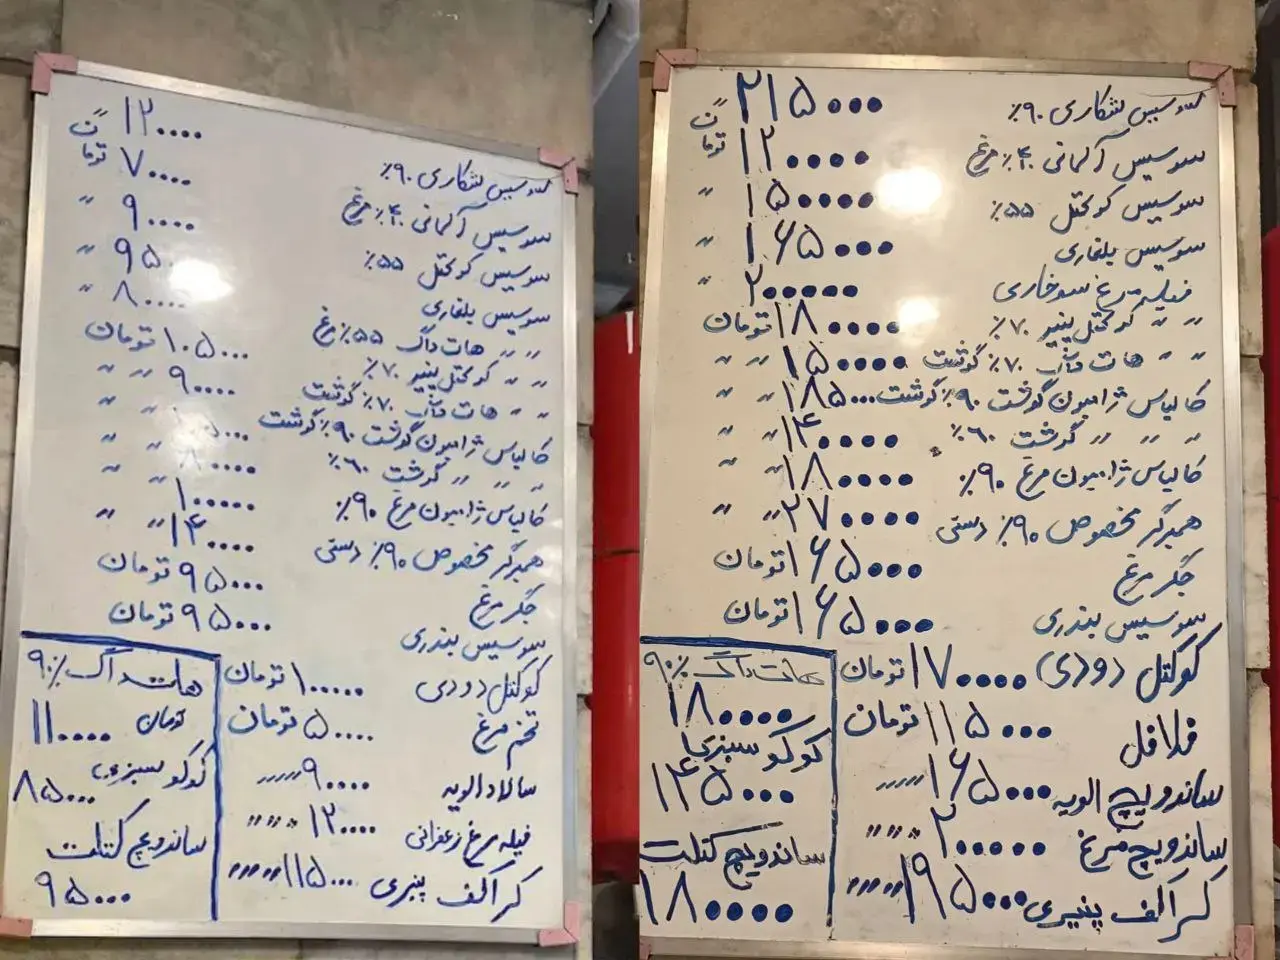 سوسیس شکاری ۹۰٪ ۱۲۰۰۰۰ ت
سوسیس آلمانی ۴۰٪ مرغ ۷۰۰۰۰ تومان
سوسیس کوکتل ۵۵٪ ۹۰۰۰۰ "
سوسیس بلغاری ۹۵۰ "
" " هات داگ ۵۵٪ مرغ ۸۰۰۰۰ "
" " کوکتل پنیر ۷۰٪ ۱۰۵۰۰۰ تومان
" " هات داگ ۷۰٪ گوشت ۹۰۰۰۰ " "
کالباس ژامبون گوشت ۹۰٪ گوشت ۰۰۰ " "
" " " گوشت ۶۰٪ ۸۰۰۰۰ " "
کالباس ژامبون مرغ ۹۰٪ ۱۰۰۰۰۰ " "
همبرگر مخصوص ۹۰٪ دستی ۱۴۰۰۰۰ " "
جگر مرغ ۹۵۰۰۰ تومان
سوسیس بندری ۹۵۰۰۰ تومان
کوکتل دودی ۱۰۰۰۰۰ تومان
تخم مرغ ۵۰۰۰۰ تومان
سالاد الویه ۹۰۰۰۰ """"
فیله مرغ زعفرانی ۱۲۰۰۰۰ """"
کراکف پنیری ۱۱۵۰۰۰ """"
هات داگ ۹۰٪
۱۱۰۰۰۰ تومان
کوکو سبزی
۸۵۰۰۰
ساندویچ کتلت
۹۵۰۰۰
سوسیس شکاری ۹۰٪ ۲۱۵۰۰۰ ت
سوسیس آلمانی ۴۰٪ مرغ ۱۲۰۰۰۰ تومان
سوسیس کوکتل ۵۵٪ ۱۵۰۰۰۰ "
سوسیس بلغاری ۱۶۵۰۰۰ "
فیله مرغ سوخاری ۲۰۰۰۰۰ "
" " کوکتل پنیر ۷۰٪ ۱۸۰۰۰۰ تومان
" " هات داگ ۷۰٪ گوشت ۱۵۰۰۰۰ " "
کالباس ژامبون گوشت ۹۰٪ گوشت ۱۸۵۰۰۰ " "
" " " گوشت ۶۰٪ ۱۴۰۰۰۰ " "
کالباس ژامبون مرغ ۹۰٪ ۱۸۰۰۰۰ " "
همبرگر مخصوص ۹۰٪ دستی ۲۷۰۰۰۰ " "
جگر مرغ ۱۶۵۰۰۰ تومان
سوسیس بندری ۱۶۵۰۰۰ تومان
کوکتل دودی ۱۷۰۰۰۰ تومان
فلافل ۱۱۵۰۰۰ تومان
ساندویچ الویه ۱۶۵۰۰۰ """"
ساندویچ مرغ ۲۰۰۰۰۰ """"
کراکف پنیری ۱۹۵۰۰۰ """"
هات داگ ۹۰٪
۱۸۰۰۰۰
کوکو سبزی
۱۴۵۰۰۰
ساندویچ کتلت
۱۸۰۰۰۰